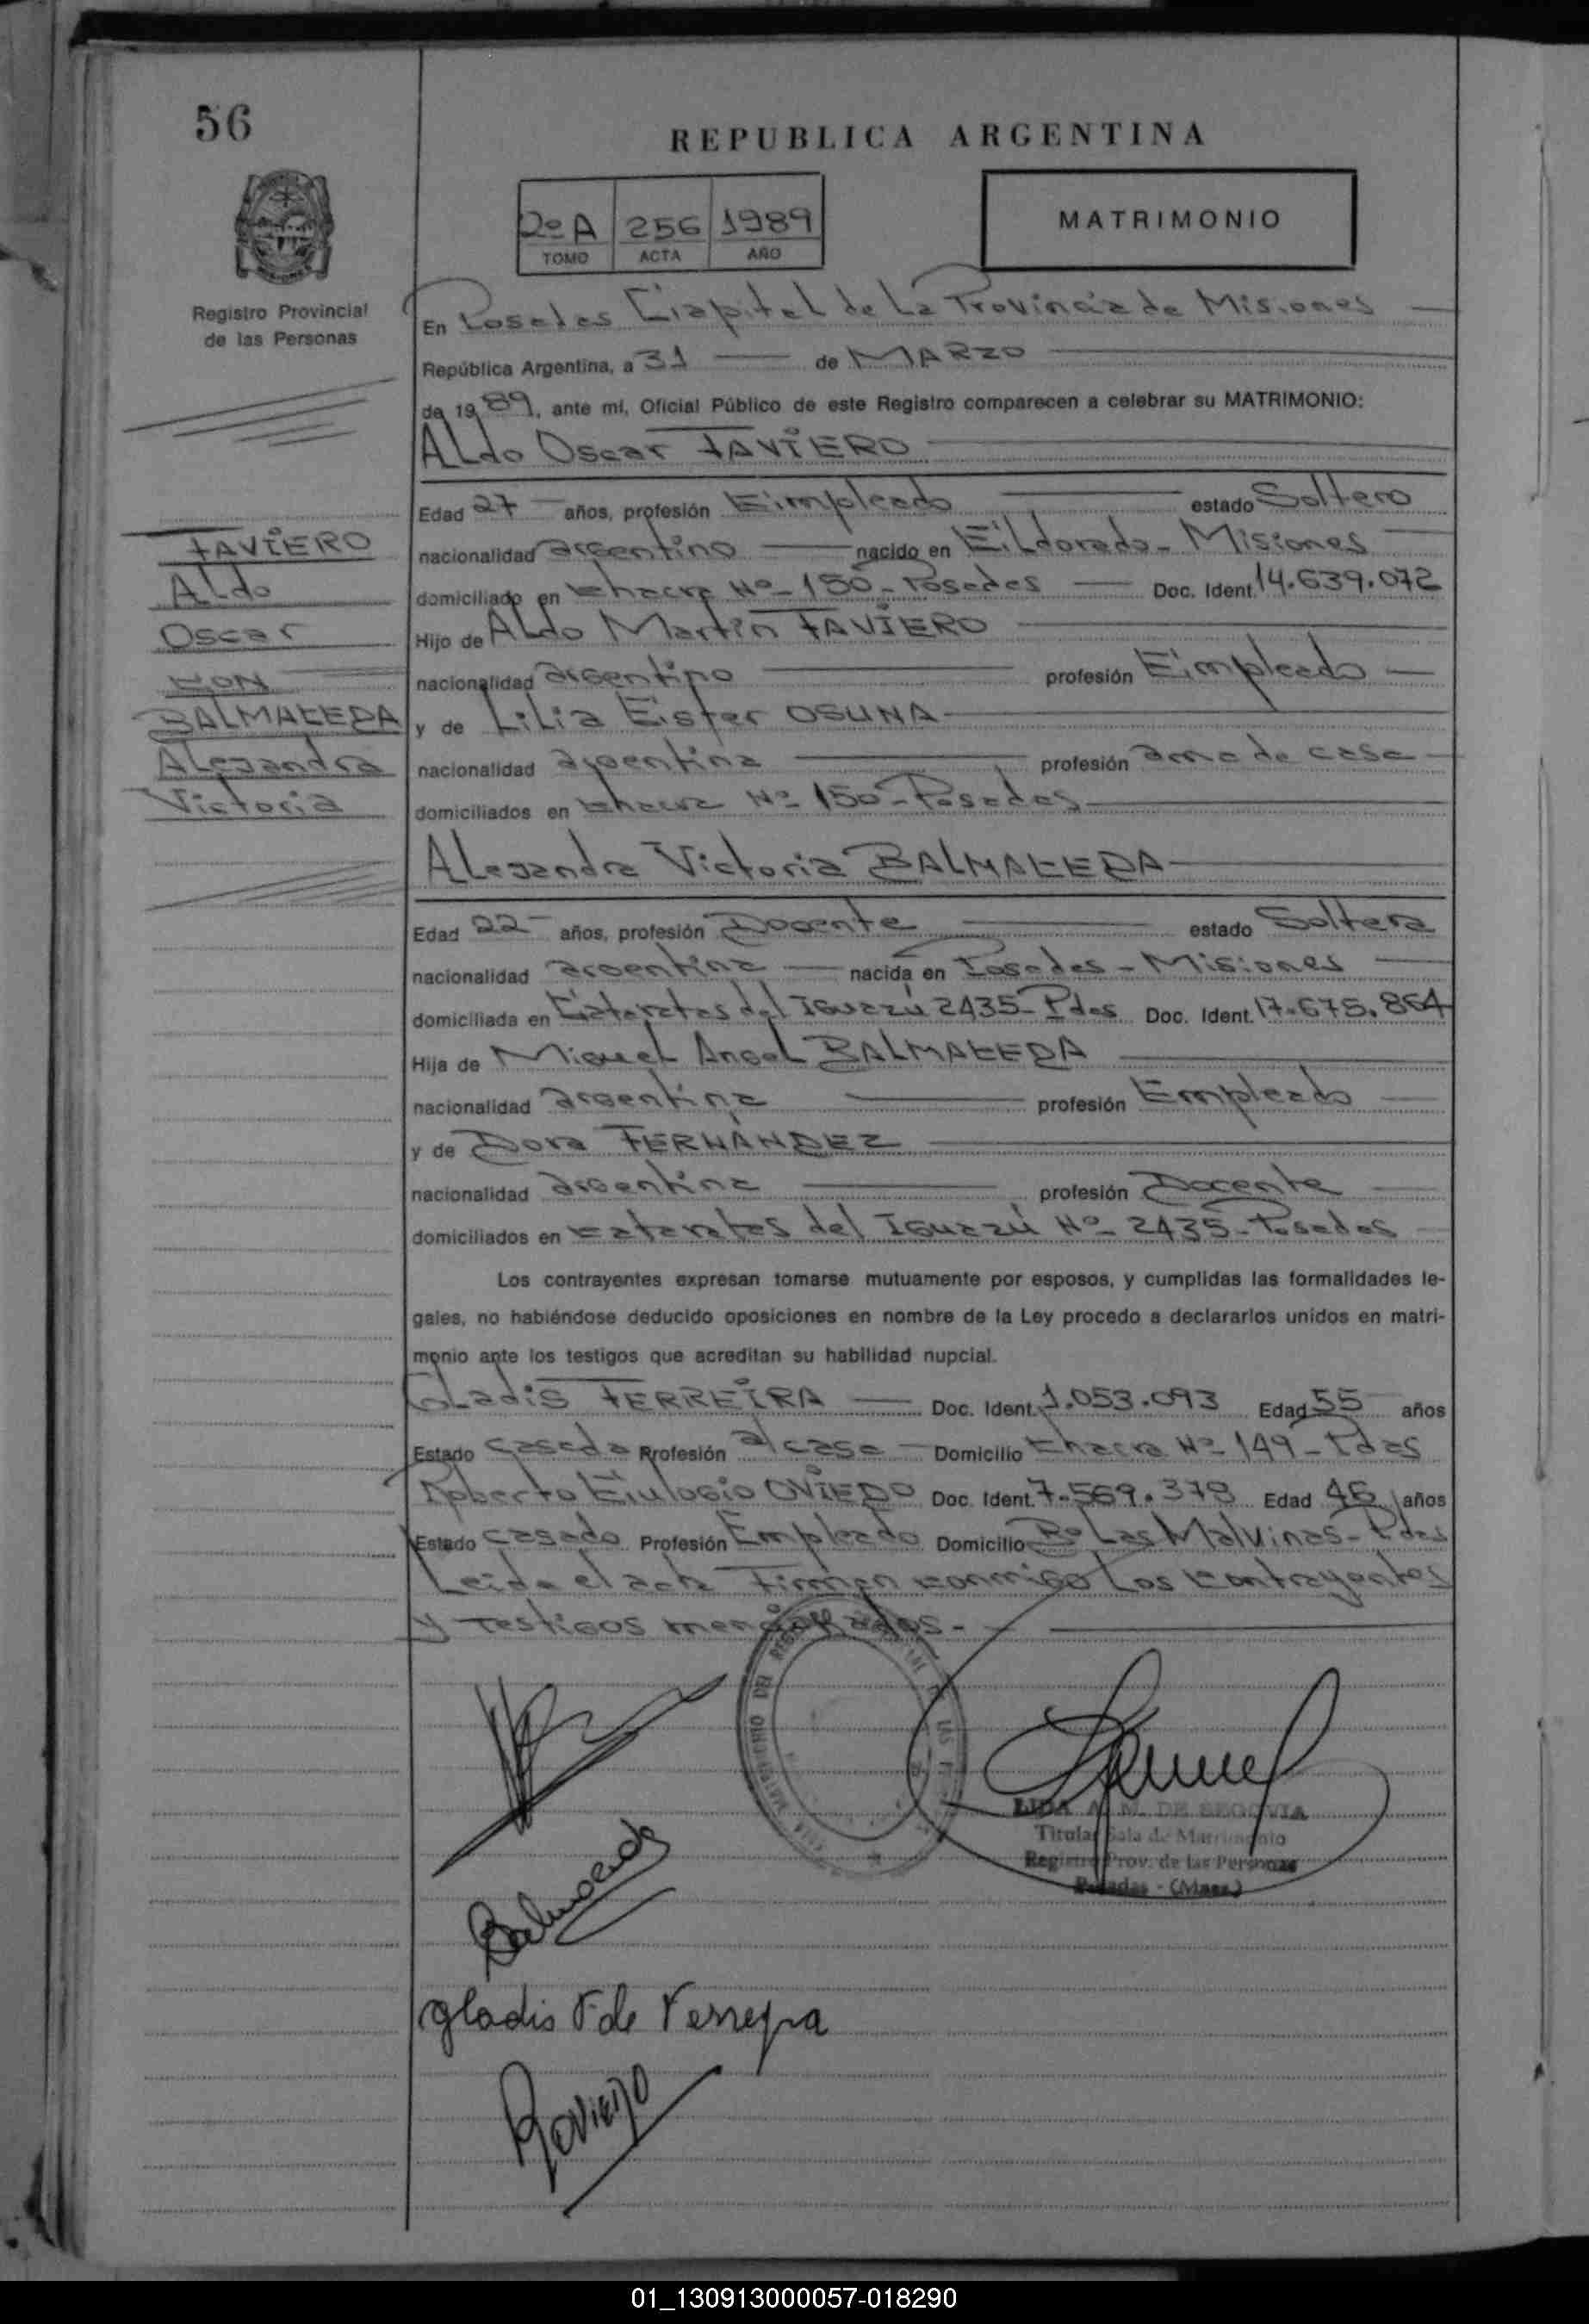 56
REPUBLICA ARGENTINA
2º A 256 1989
TOMO ACTA AÑO
MATRIMONIO
Registro Provincial
de las Personas
En Posadas Capital de La Provincia de Misiones
República Argentina, a 31 de MARZO
de 1989, ante mí, Oficial Público de este Registro comparecen a celebrar su MATRIMONIO:
Aldo Oscar FAVIERO
Edad 27 años, profesión Empleado estado Soltero
nacionalidad argentino nacido en Eldorado - Misiones
domiciliado en Chacra Nº 150 - Posadas Doc. Ident. 14.639.072
Hijo de Aldo Martín FAVIERO
nacionalidad argentino profesión Empleado
y de Lilia Ester OSUNA
nacionalidad argentina profesión ama de casa
domiciliados en Chacra Nº 150 - Posadas
FAVIERO
Aldo
Oscar
CON
BALMACEDA
Alejandra
Victoria
Alejandra Victoria BALMACEDA
Edad 22 años, profesión Docente estado Soltera
nacionalidad argentina nacida en Posadas - Misiones
domiciliada en Cataratas del Iguazú 2435 - Pdas Doc. Ident. 17.675.864
Hija de Miguel Angel BALMACEDA
nacionalidad argentina profesión Empleado
y de Dora FERNÁNDEZ
nacionalidad argentina profesión Docente
domiciliados en Cataratas del Iguazú Nº 2435 - Posadas
Los contrayentes expresan tomarse mutuamente por esposos, y cumplidas las formalidades le-
gales, no habiéndose deducido oposiciones en nombre de la Ley procedo a declararlos unidos en matri-
monio ante los testigos que acreditan su habilidad nupcial.
Gladis FERREIRA Doc. Ident. 1.053.093 Edad 55 años
Estado Casada Profesión a/casa Domicilio Chacra Nº 149 - Pdas
Roberto Eulogio OVIEDO Doc. Ident. 7.569.378 Edad 46 años
Estado Casado Profesión Empleado Domicilio Bº Las Malvinas - Pdas
Leida el acta Firman conmigo Los contrayentes
y testigos mencionados.-
LIDA A. M. DE SEGOVIA
Titular Sala de Matrimonio
Registro Prov. de las Personas
Posadas - (Mnes.)
Balmaceda
gladis F de Ferreyra
ROVIEDO
01_130913000057-018290